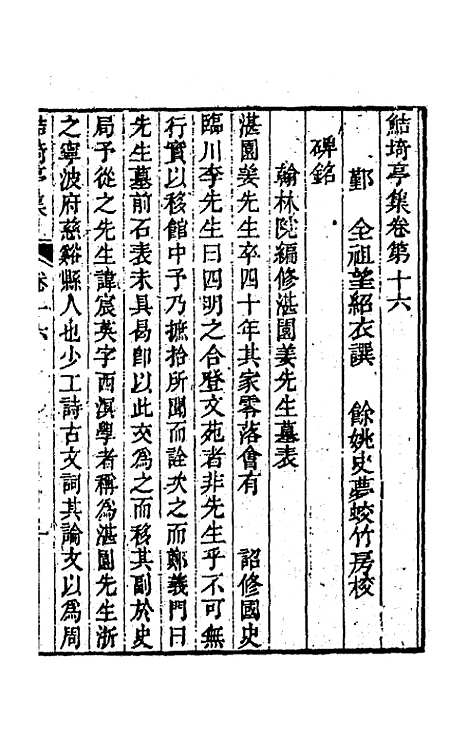 鮚埼亭集卷第十六
鄞　全祖望紹衣譔　餘姚史夢蛟竹房校
碑銘
翰林院編修湛園姜先生墓表
湛園姜先生卒四十年其家零落會有　詔修國史
臨川李先生曰四明之合登文苑者非先生乎不可無
行實以移館中予乃摭拾所聞而詮次之而鄭義門曰
先生墓前石表未具曷卽以此文爲之而移其副於史
局予從之先生諱宸英字西溟學者稱爲湛園先生浙
之寧波府慈谿縣人也少工詩古文詞其論文以爲周
鮚埼亭集　卷十六